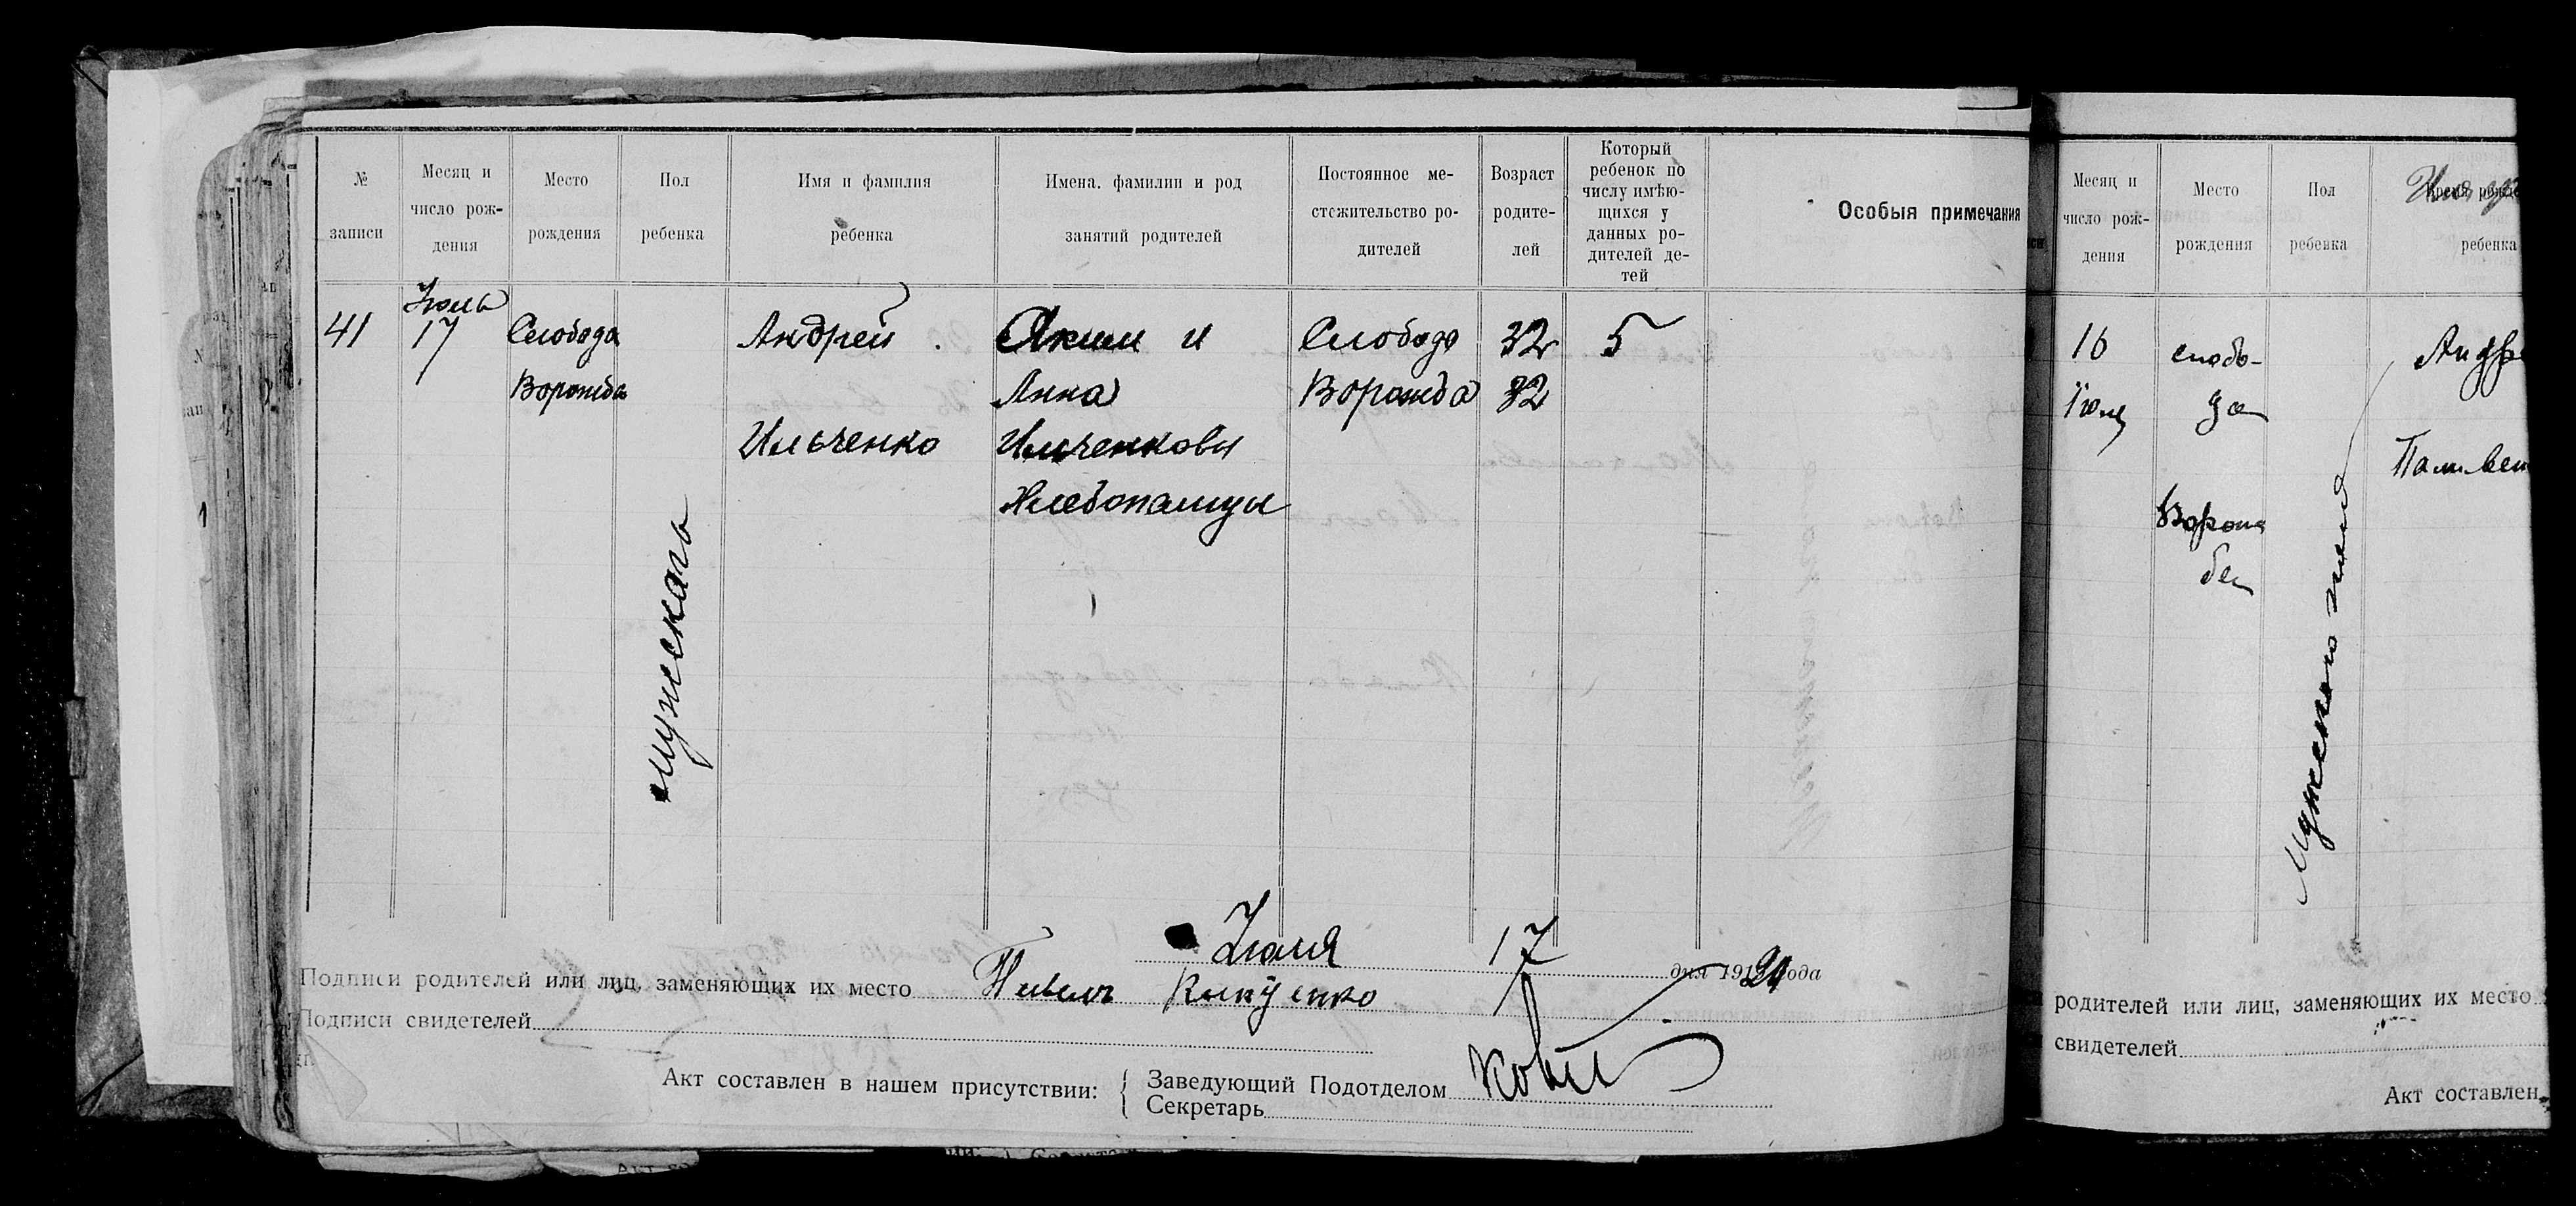 № записи
Месяц и число рож- дения
Место рождения
Пол ребенка
Имя и фамилия ребенка
Имена. фамилии и род занятий родителей
Постоянное ме- стожительство ро- дителей
Возраст родите- лей
Который ребенок по числу имѣю- щихся у данных ро- дителей де- тей
Особыя примечания
41
Июль
17
Слобода
Ворожба
мужескаго
Андрей
Ильченко
Аким и
Анна
Ильченковы
Хлебопашцы
Слобода
Ворожба
32
32
5
Июля 17 дня 1920 года
Подписи родителей или лиц, заменяющих их место
Подписи свидетелей
Акт составлен в нашем присутствии:
Заведующий Подотделом
Секретарь
Месяц и число рож- дения
Место рождения
Пол
ребенка
ребенка
16
слобо-
да
Мужского
родителей или лиц, заменяющих их место
свидетелей
Акт составлен